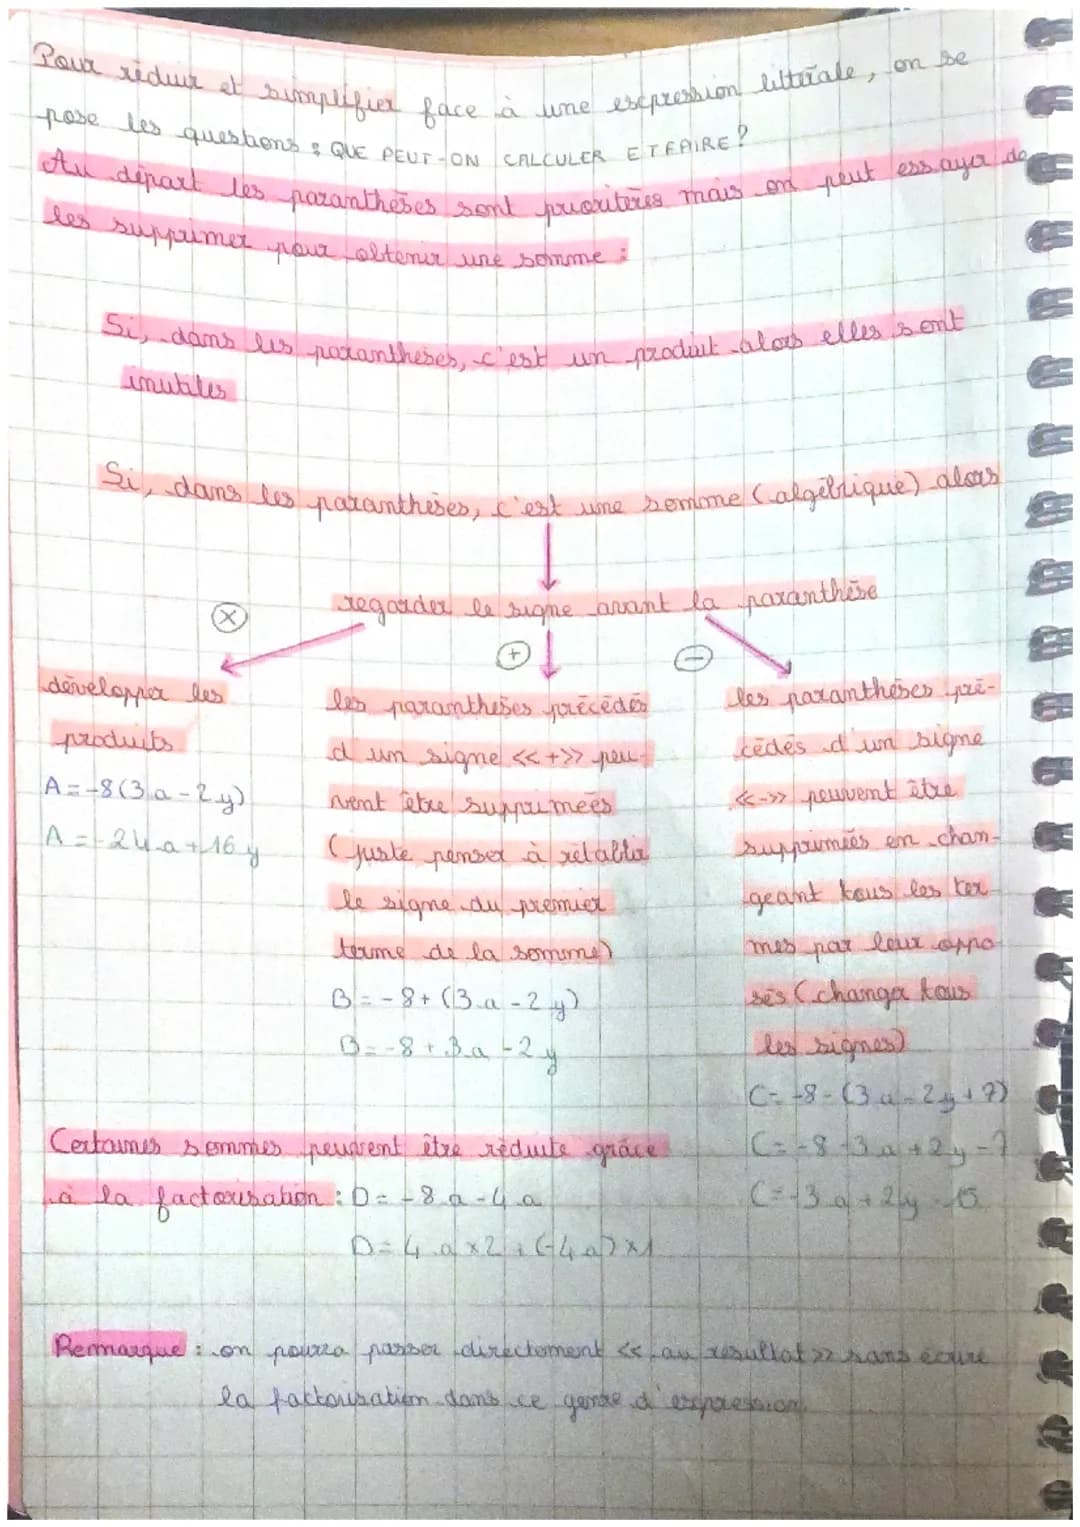 Pour réduir et simplifier face à une escpression littérale, on se
pose les questions : QUE PEUT-ON CALCULER ET FAIRE ?
Au départ les paranthèses sont prioritères mais on peut essayer de
les supprimer pour obtenir une somme :
Si, dans les paranthèses, c'est un produit alors elles sont
inutiles
Si, dans les paranthèses, c'est une somme (algébrique) alors
regarder le signe avant la paranthèse
× + −
développer les
produits
A = -8(3a - 2y)
A = -24a + 16y
les paranthèses précédés
d'un signe <<+>> peu-
vent être supprimées
(juste penser à rétablir
le signe du premier
terme de la somme)
B = -8 + (3a - 2y)
B = -8 + 3a - 2y
les paranthèses pré-
cédés d'un signe
<<->> peuvent être
supprimés en chan-
geant tous les ter-
mes par leur oppo-
sés (changer tous
les signes)
C = -8 - (3a - 2y + 7)
C = -8 - 3a + 2y - 7
C = -3a + 2y - 15
Certaines sommes peuvent être réduite grâce
à la factorisation : D = -8a - 4a
D = 4a × 2 + (-4a) × 1
Remarque : on pourra passer directement << au résultat >> sans écrire
la factorisation dans ce genre d'expression.